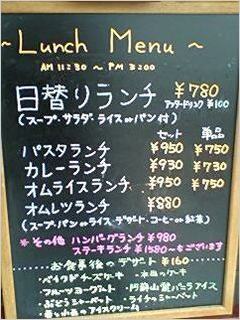 ~ Lunch Menu ~
AM 11:30 ~ PM 3:00
日替りランチ ¥780
アフタードリンク ¥100
(スープ・サラダ・ライス or パン付)
セット 単品
パスタランチ ¥950 ¥750
カレーランチ ¥930 ¥730
オムライスランチ ¥950 ¥750
オムレツランチ ¥880
(スープ・パン or ライス・デザート・コーヒー or 紅茶)
※ その他 ハンバーグランチ ¥980
ステーキランチ ¥1580~もございます
お食事後の デザート ¥160
・ベイクドチーズケーキ ・本日のケーキ
・フルーツヨーグルト ・阿蘇山麓バニラアイス
・ぶどうシャーベット ・ライチシャーベット
アイスクリーム